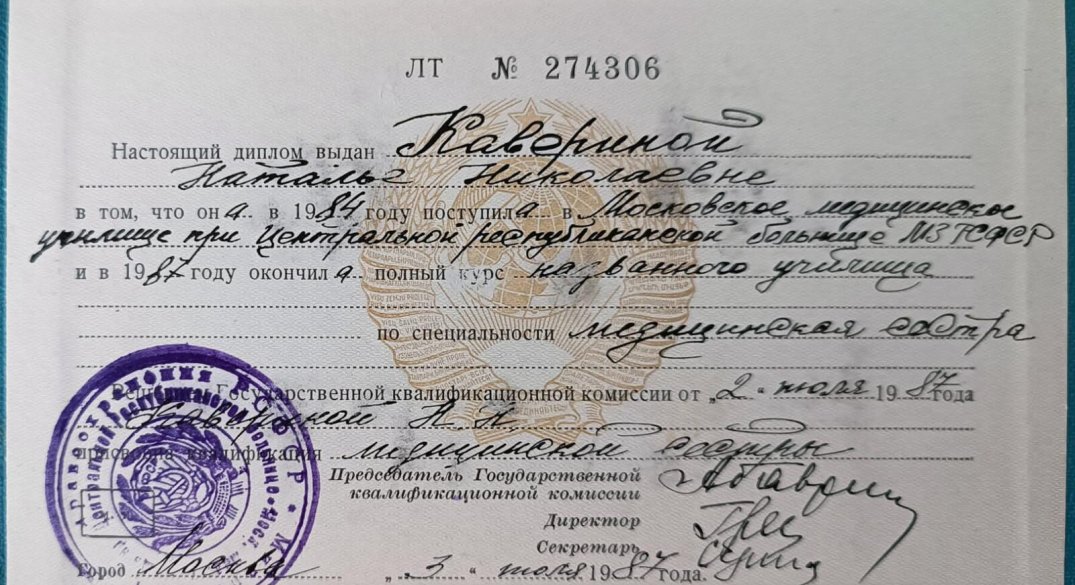 ЛТ № 274306
Настоящий диплом выдан Кавериной
Наталье Николаевне
в том, что она в 1984 году поступила в Московское медицинское
училище при Центральной республиканской больнице МЗ РСФСР
и в 1987 году окончила полный курс названного училища
по специальности медицинская сестра
Решением Государственной квалификационной комиссии от „2“ июля 1987 года
Кавериной Н. Н.
присвоена квалификация медицинской сестры
Председатель Государственной
квалификационной комиссии
Директор
Секретарь
Город Москва „3“ июля 1987 года.